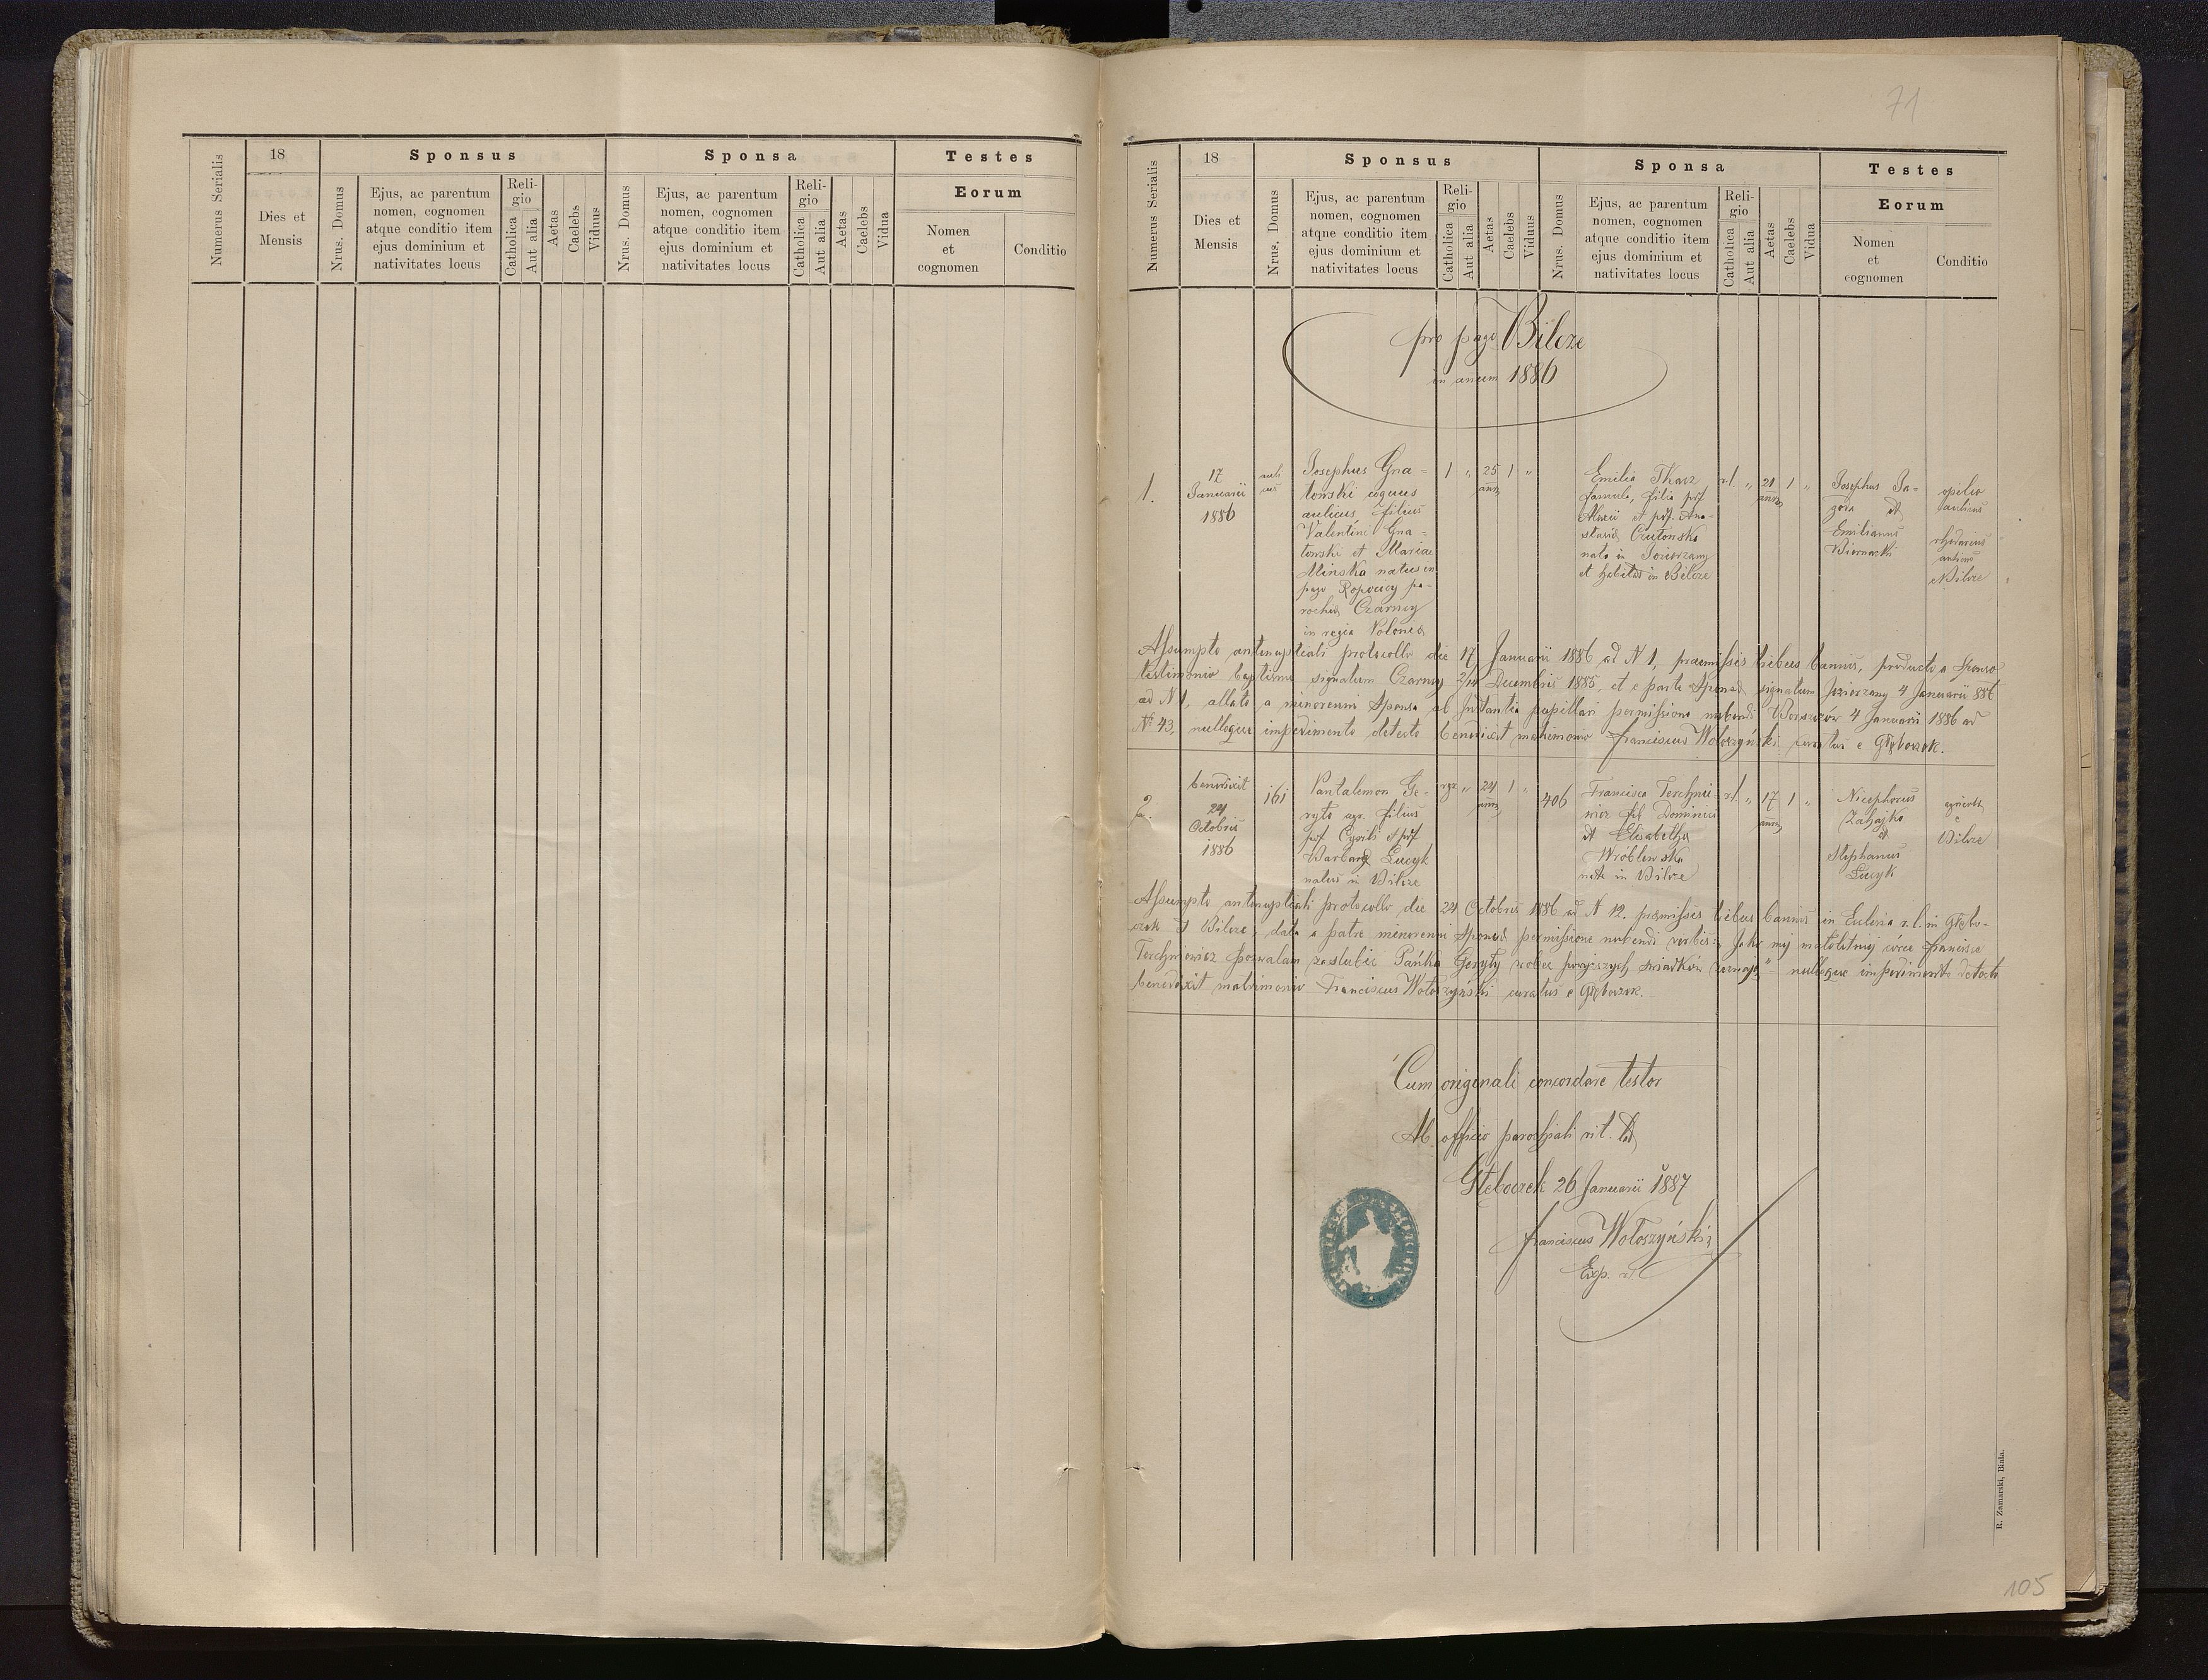 Numerus Serialis
18
Dies et
Mensis
Sponsus
Nrus. Domus
Ejus, ac parentum
nomen, cognomen
atque conditio item
ejus dominium et
nativitates locus
Reli-
gio
Catholica
Aut alia
Aetas
Caelebs
Viduus
Sponsa
Nrus. Domus
Ejus, ac parentum
nomen, cognomen
atque conditio item
ejus dominium et
nativitates locus
Reli-
gio
Catholica
Aut alia
Aetas
Caelebs
Vidua
Testes
Eorum
Nomen
et
cognomen
Conditio
71
Numerus Serialis
18
Dies et
Mensis
Sponsus
Nrus. Domus
Ejus, ac parentum
nomen, cognomen
atqne conditio item
ejus dominium et
nativitates locus
Reli-
gio
Catholica
Aut alia
Aetas
Caelebs
Viduus
Sponsa
Nrus. Domus
Ejus, ac parentum
nomen, cognomen
atque conditio item
ejus dominium et
nativitates locus
Reli-
gio
Catholica
Aut alia
Aetas
Caelebs
Vidua
Testes
Eorum
Nomen
et
cognomen
Conditio
pro pago Bilcze
in annum 1886
1.
17
Januarii
1886
Josephus Gna=
towski coquus
aulicus filius
Valentini Gna=
towski et Mariae
Minska natus in
pago
Czarncy
in regia Polonia
1 " 25 1 "
annor
Emilia Tkacz
famula, filia p̃f
Alexii et p̃f. Ana-
stasiæ
nata in Jezierzany
et habitas in Bilcze
r.l. " 21 1 "
annor
Josephus Ja=
góra et
Emilianus
Biernacki
opilio
aulicus
rhedarius
aulicus
Bilcze
Assumpto antenuptiali protocollo die 17 Januarii 1886 ad N 1, praemissis tribus bannis, producto a Sponso
testimonio baptismi signatum Czarncy Decembris 1885, et e parte Sponsæ signatum Jezierzany 4 Januarii 886
ad N 1, allato a minorenni Sponsa ab Instantia pupillari permissione nubendi Borszczów 4 Januarii 1886 ad
N. 43, nulloque impedimento detecto benedixit matrimonio Franciscus Wołoszyński curatus e Głęboczek.
2.
benedixit
24
Octobris
1886
161
Pantalemon Ge-
ryto agr. filius
p̃f Cyrili et p̃f
Barbaræ Łucyk
natus in Bilcze
rgr " 24 1 "
annor
406
Francisca Terchnie-
wicz fil Dominici
et Elisabetha
Wróblewska
nata in Bilcze
r.l. " 17 1 "
annor
Nicephorus
Zahajko
et
Stephanus
Łucyk
agricolæ
e
Bilcze
Assumpto antenuptiali protocollo die 24 Octobris 1886 ad N 12. præmissis tribus bannis in Eclesia r.l. in Głębo-
czek et Bilcze, data a patre minorenni Sponsæ permissione nubendi verbis: Jako mej małoletniej córce Francisce
Terchniewicz pozwalam zaślubić Pańka Geryty wobec świadków zeznaję" nulloque impedimento detecto
benedixit matrimonio Franciscus Wołoszyński curatus e Głęboczek.
Cum originali concordare testor
Ab officio parochiali rit. lat
Głęboczek 26 Januarii 1887
Franciscus Wołoszyński
Exp. r.l.
R. Zamarski, Biała.
105